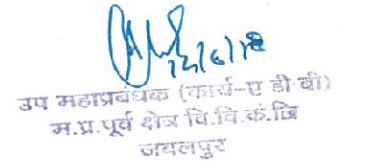 12/6/18
उप महाप्रबंधक (कार्य-ए डी बी)
म.प्र.पूर्व क्षेत्र वि.वि.कं.लि
जबलपुर